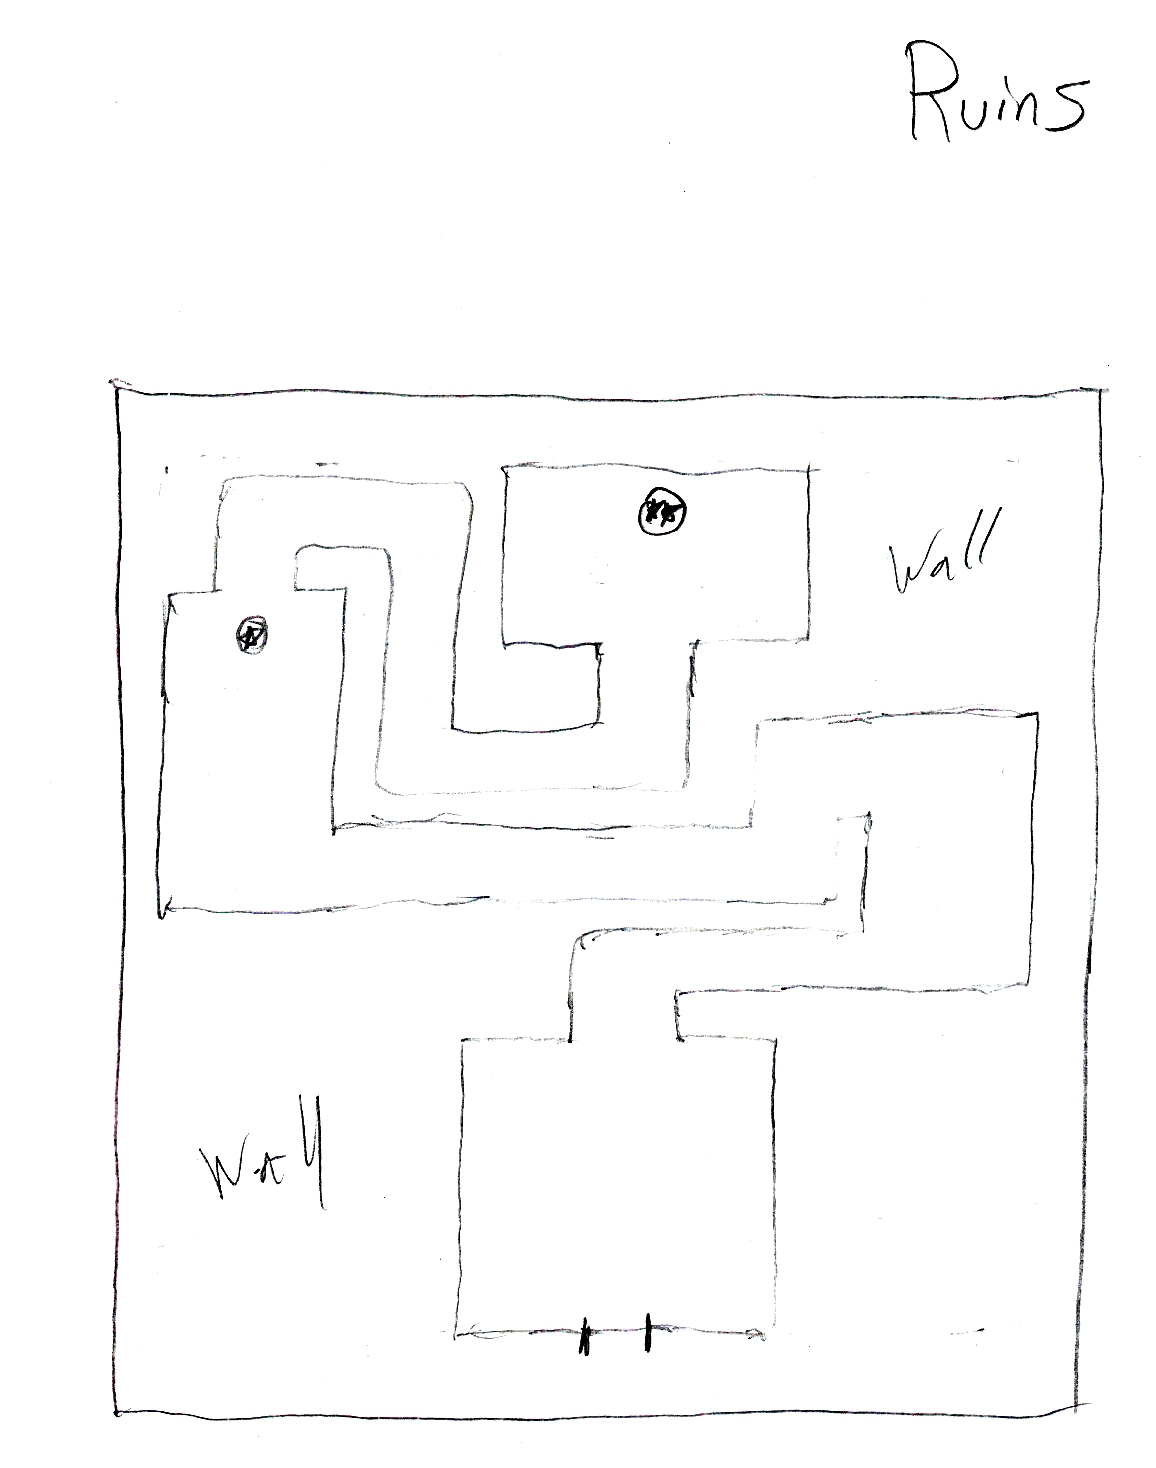 Ruins
Wall
Wall